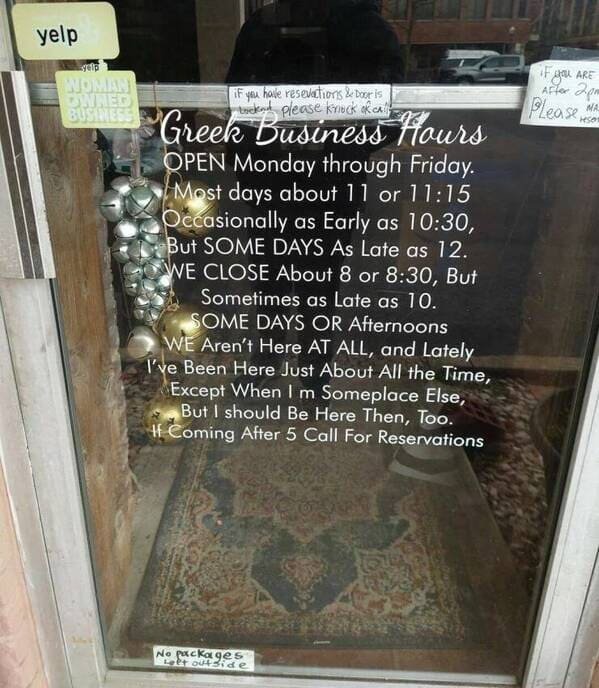 yelp
yelp
WOMAN
OWNED
BUSINESS
if you have resevations & Door is
Locked please knock or call
if you ARE
AFter 2pm
Please
Greek Business Hours
OPEN Monday through Friday.
Most days about 11 or 11:15
Occasionally as Early as 10:30,
But SOME DAYS As Late as 12.
WE CLOSE About 8 or 8:30, But
Sometimes as Late as 10.
SOME DAYS OR Afternoons
WE Aren't Here AT ALL, and Lately
I've Been Here Just About All the Time,
Except When I m Someplace Else,
But I should Be Here Then, Too.
If Coming After 5 Call For Reservations
No packages
Left outside